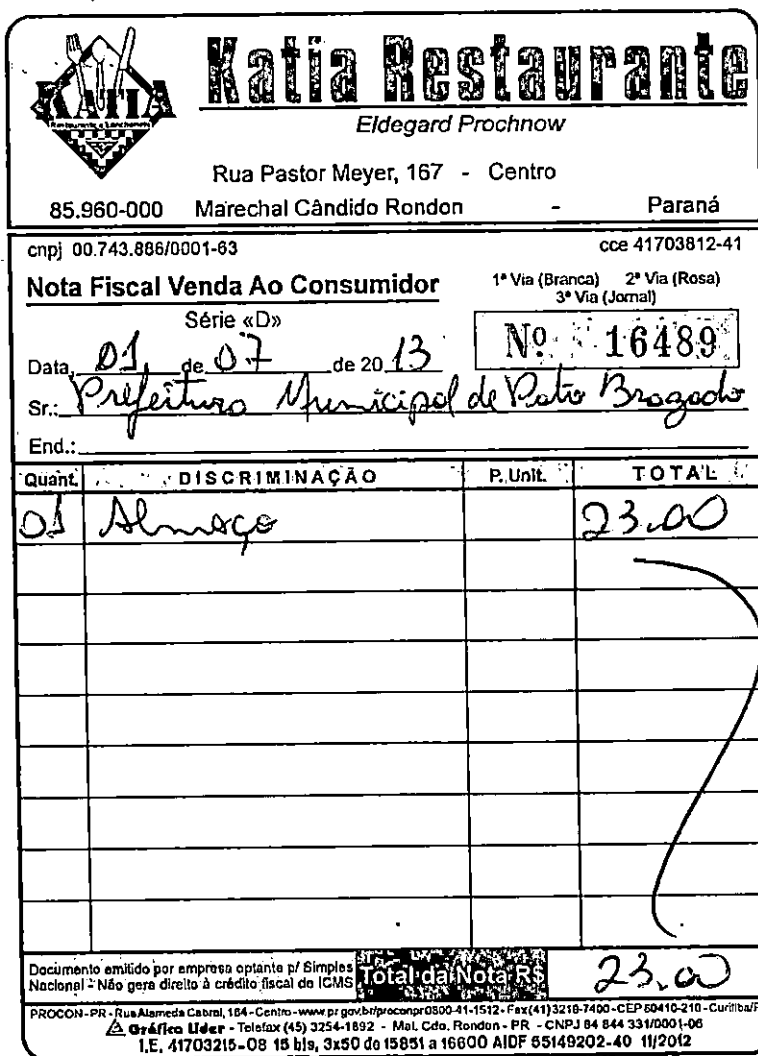 KATIA
Restaurante e Lanchonete
Katia Restaurante
Eldegard Prochnow
Rua Pastor Meyer, 167 - Centro
85.960-000 Marechal Cândido Rondon - Paraná
cnpj 00.743.886/0001-63 cce 41703812-41
Nota Fiscal Venda Ao Consumidor
1ª Via (Branca) 2ª Via (Rosa)
3ª Via (Jornal)
Série «D»
Nº 16489
Data, 01 de 07 de 20 13
Sr.: Prefeitura Municipal de Pato Bragado
End.:
Quant. DISCRIMINAÇÃO P. Unit. TOTAL
01 Almoço 23,00
Documento emitido por empresa optante p/ Simples
Nacional - Não gera direito à crédito fiscal do ICMS
Total da Nota R$ 23,00
PROCON-PR - Rua Alameda Cabral, 184 - Centro - www.pr.gov.br/proconpr 0800-41-1512 - Fax (41) 3218-7400 - CEP 80410-210 - Curitiba/P
Gráfica Líder - Telefax (45) 3254-1892 - Mal. Cdo. Rondon - PR - CNPJ 84 844 331/0001-06
I.E. 41703215-08 15 bls, 3x50 do 15851 a 16600 AIDF 55149202-40 11/2012